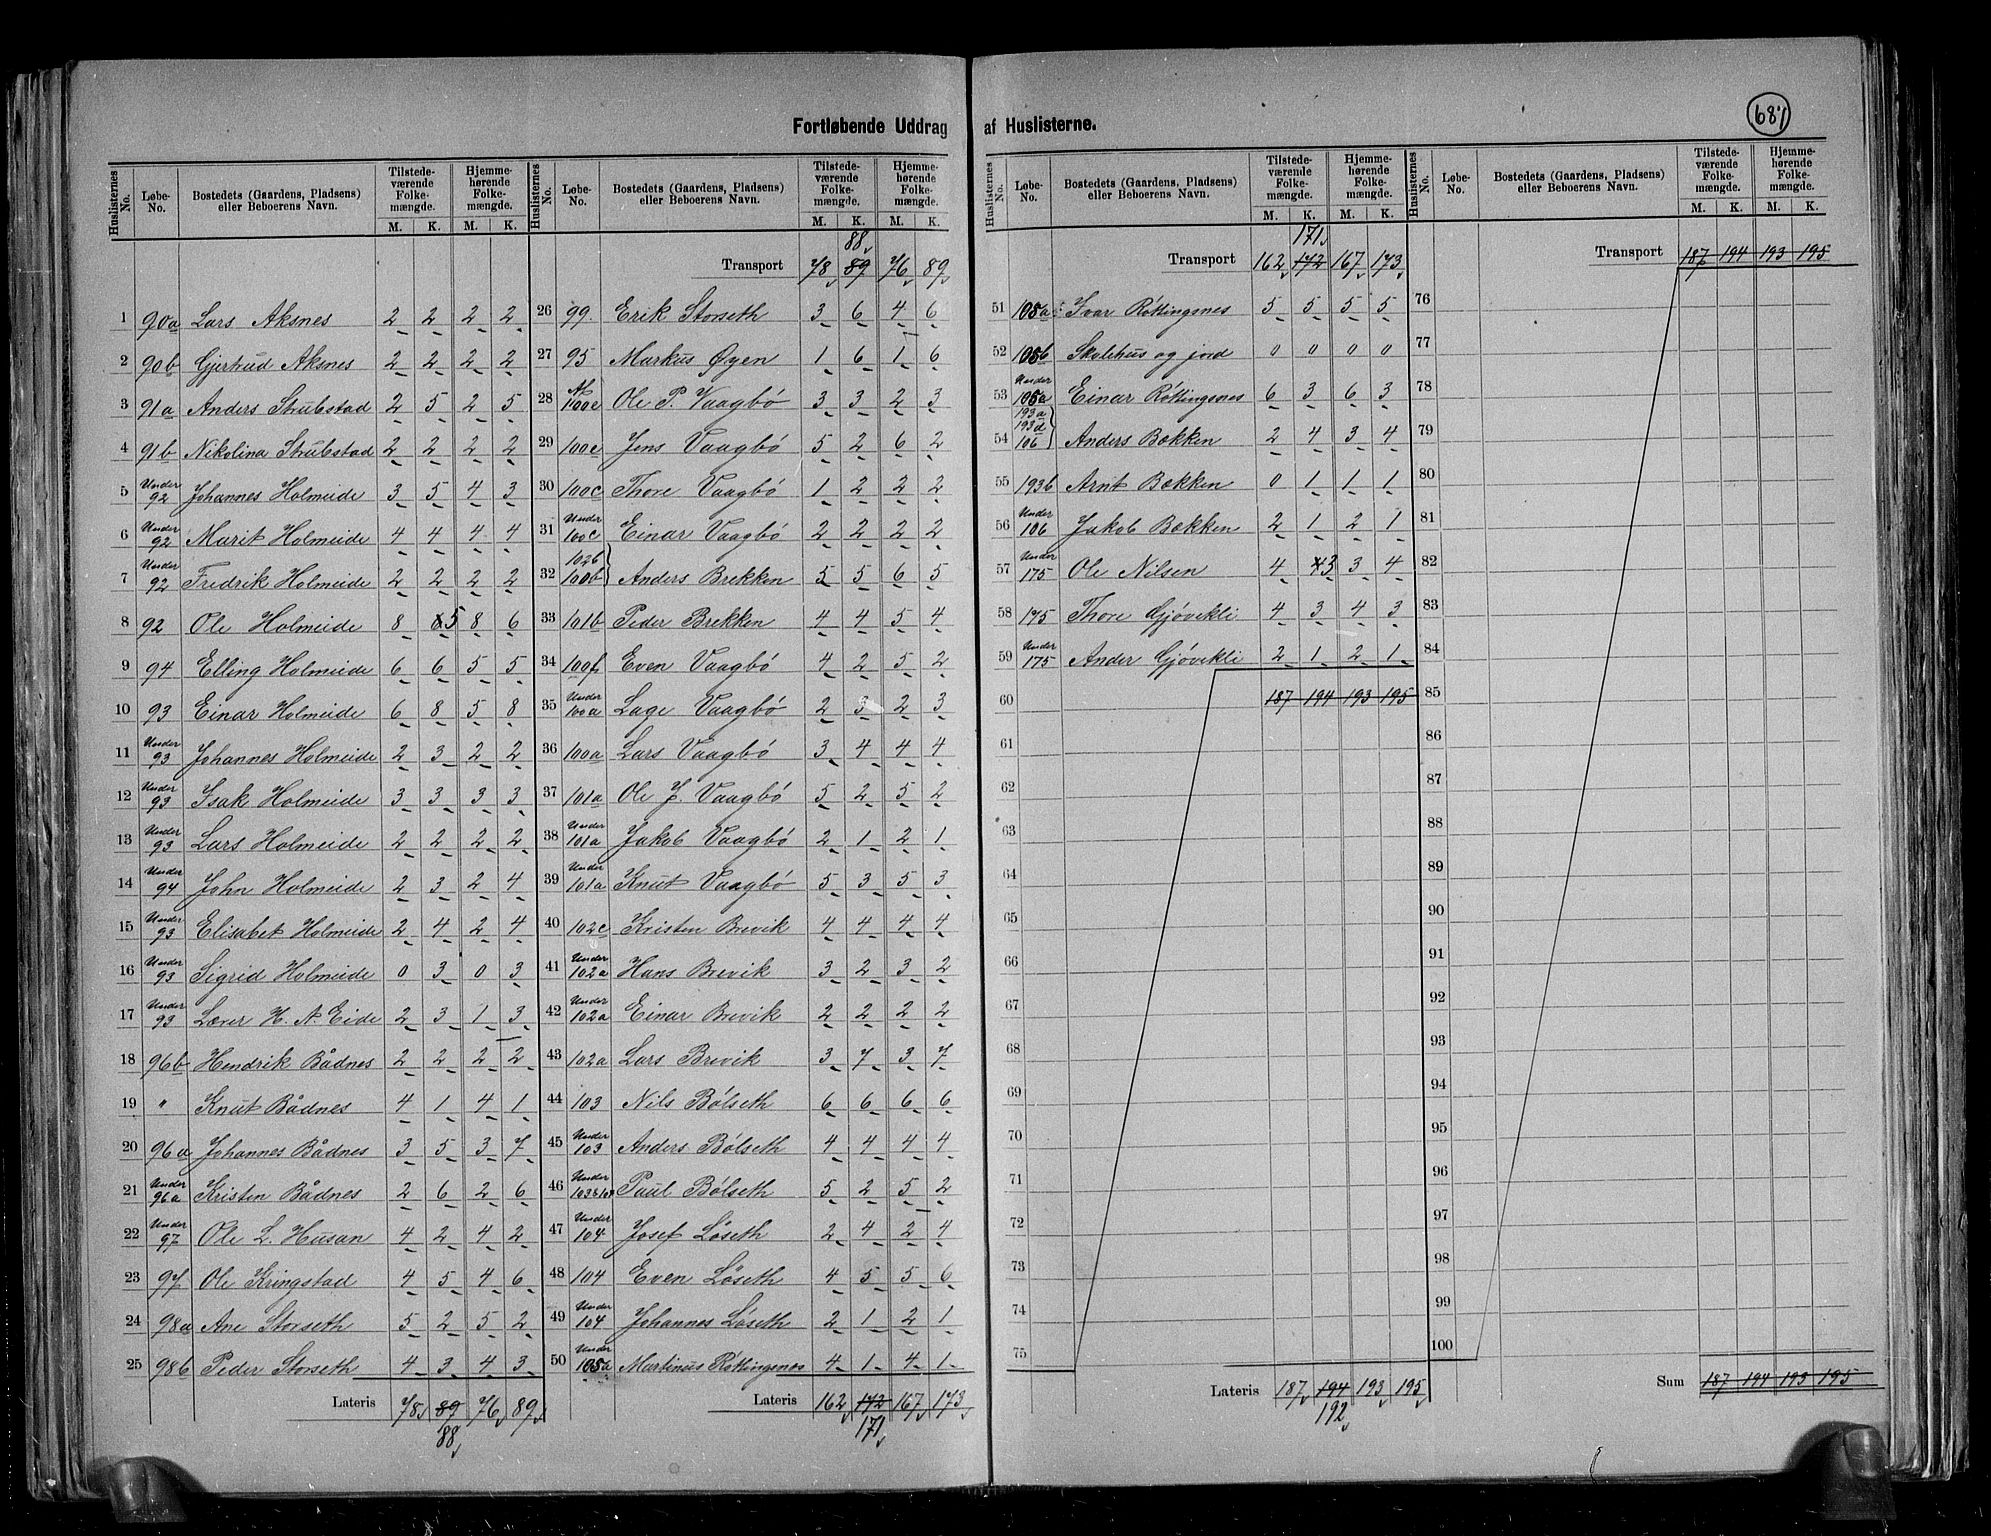 Fortløbende Uddrag af Huslisterne.
687
Huslisternes No. | Løbe-No. | Bostedets (Gaardens, Pladsens) eller Beboerens Navn. | Tilstedeværende Folkemængde. M. K. | Hjemmehørende Folkemængde. M. K.
1 90a Lars Aksnes 2 2 2 2
2 90b Gjertrud Aksnes 2 2 2 2
3 91a Anders Strubstad 2 5 2 5
4 91b Nikolina Strubstad 2 2 2 2
5 Under 92 Johannes Holmeide 3 5 4 3
6 Under 92 Marit Holmeide 4 4 4 4
7 Under 92 Fredrik Holmeide 2 2 2 2
8 92 Ole Holmeide 8 5 8 6
9 94 Elling Holmeide 6 6 5 5
10 93 Einar Holmeide 6 8 5 8
11 Under 93 Johannes Holmeide 2 3 2 2
12 Under 93 Isak Holmeide 3 3 3 3
13 Under 93 Lars Holmeide 2 2 2 2
14 Under 94 John Holmeide 2 3 2 4
15 Under 93 Elisabet Holmeide 2 4 2 4
16 Under 93 Sigrid Holmeide 0 3 0 3
17 Under 93 Lærer H. A. Eide 2 3 1 3
18 96b Hendrik Bådnes 2 2 2 2
19 " Knut Bådnes 4 1 4 1
20 96a Johannes Bådnes 3 5 3 7
21 Under 96a Kristen Bådnes 2 6 2 6
22 Under 97 Ole L. Husan 4 2 4 2
23 97 Ole Kringstad 4 5 4 6
24 98a Ane Storseth 5 2 5 2
25 98b Peder Storseth 4 3 4 3
Lateris 78 89 76 89
88
Huslisternes No. | Løbe-No. | Bostedets (Gaardens, Pladsens) eller Beboerens Navn. | Tilstedeværende Folkemængde. M. K. | Hjemmehørende Folkemængde. M. K.
88
Transport 78 89 76 89
26 99. Erik Storseth 3 6 4 6
27 95 Markus Øyen 1 6 1 6
28 100e Ole P. Vaagbö 3 3 2 3
29 100e Jens Vaagbö 5 2 6 2
30 100c Thore Vaagbö 1 2 2 2
31 Under 100c Einar Vaagbö 2 2 2 2
32 102b 100b Anders Brekken 5 5 6 5
33 101b Peder Brekken 4 4 5 4
34 100f Even Vaagbö 4 2 5 2
35 Under 100a Lage Vaagbö 2 3 2 3
36 100a Lars Vaagbö 3 4 4 4
37 101a Ole J. Vaagbö 5 2 5 2
38 Under 101a Jakob Vaagbö 2 1 2 1
39 Under 101a Knut Vaagbö 5 3 5 3
40 102c Kristen Brevik 4 4 4 4
41 Under 102a Hans Brevik 3 2 3 2
42 Under 102a Einar Brevik 2 2 2 2
43 102a Lars Brevik 3 7 3 7
44 103 Nils Bölseth 6 6 6 6
45 Under 103 Anders Bölseth 4 4 4 4
46 Under Paul Bölseth 5 2 5 2
47 Under 104 Josef Löseth 2 4 2 4
48 104 Even Löseth 4 5 5 6
49 Under 104 Johannes Löseth 2 1 2 1
50 Under 105a Martinus Röttingsnes 4 1 4 1
Lateris 162 172 167 173
171
Huslisternes No. | Løbe-No. | Bostedets (Gaardens, Pladsens) eller Beboerens Navn. | Tilstedeværende Folkemængde. M. K. | Hjemmehørende Folkemængde. M. K.
171
Transport 162 172 167 173
51 105a Ivar Röttingsnes 5 5 5 5
52 105b Skolehus og jord 0 0 0 0
53 Under 105a Einar Röttingsnes 6 3 6 3
54 193a 193d 106 Anders Bækken 2 4 3 4
55 193b Arnt Bækken 0 1 1 1
56 Under 106 Jakob Bækken 2 1 2 1
57 Under 175 Ole Nilsen 4 4 3 3 4
58 175 Thore Gjövikli 4 3 4 3
59 Under 175 Ander Gjövikli 2 1 2 1
60 187 194 193 195
61
62
63
64
65
66
67
68
69
70
71
72
73
74
75
Lateris 187 194 193 195
192
Huslisternes No. | Løbe-No. | Bostedets (Gaardens, Pladsens) eller Beboerens Navn. | Tilstedeværende Folkemængde. M. K. | Hjemmehørende Folkemængde. M. K.
Transport 187 194 193 195
76
77
78
79
80
81
82
83
84
85
86
87
88
89
90
91
92
93
94
95
96
97
98
99
100
Sum 187 194 193 195